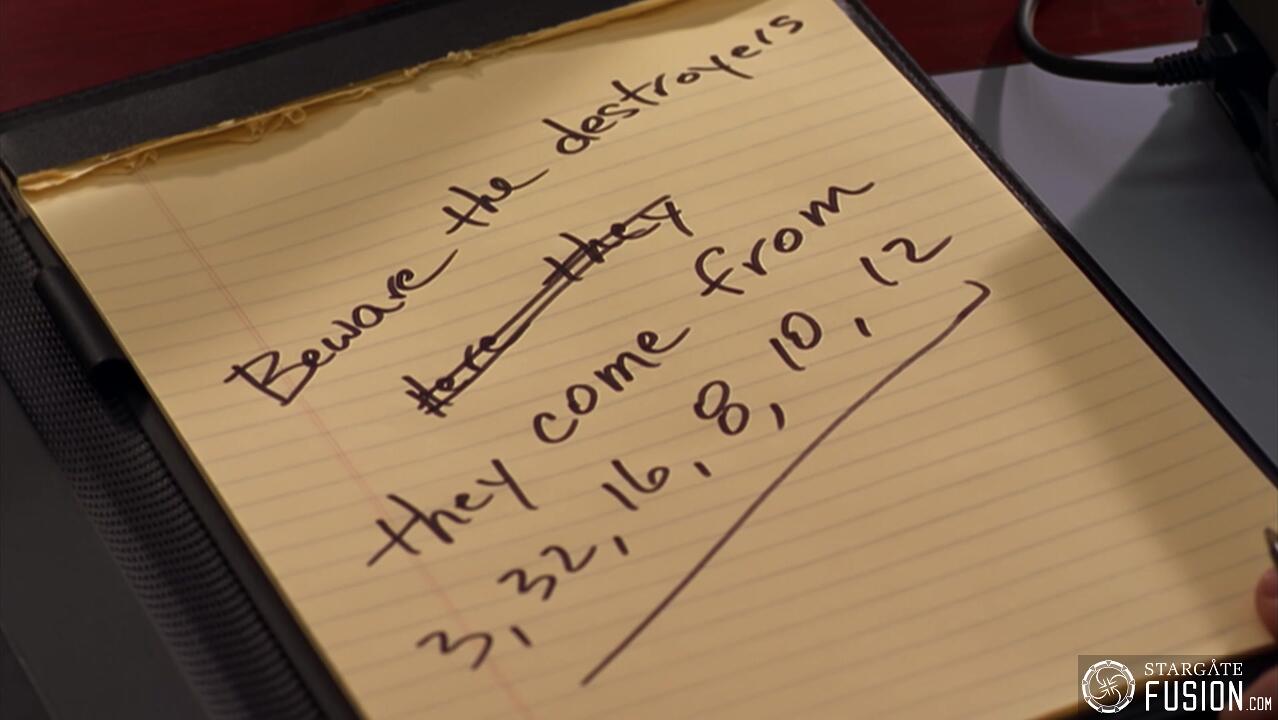 Beware the destroyers
Here they
they come from
3, 32, 16, 8, 10, 12
STARGATE
FUSION.COM